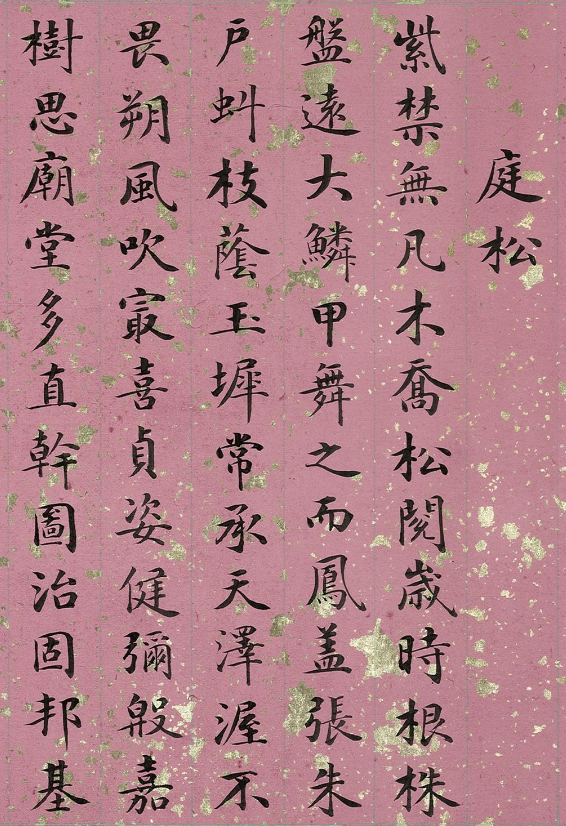 庭松
紫禁無凡木喬松閱歲時根株
盤遠大鱗甲舞之而鳳盖張朱
戶虯枝蔭玉墀常承天澤渥不
畏朔風吹㝡喜貞姿健彌殷嘉
樹思廟堂多直幹圖治固邦基